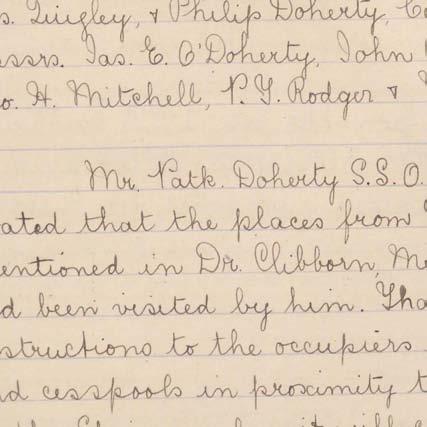 s. Quigley, & Philip Doherty, Co
essrs. Jas. E. O'Doherty, John
o. H. Mitchell, P. Y. Rodger &
Mr. Patk. Doherty S.S.O.
ated that the places from
entioned in Dr. Clibborn, Me
d been visited by him. Tha
structions to the occupiers
nd cesspools in proximity t